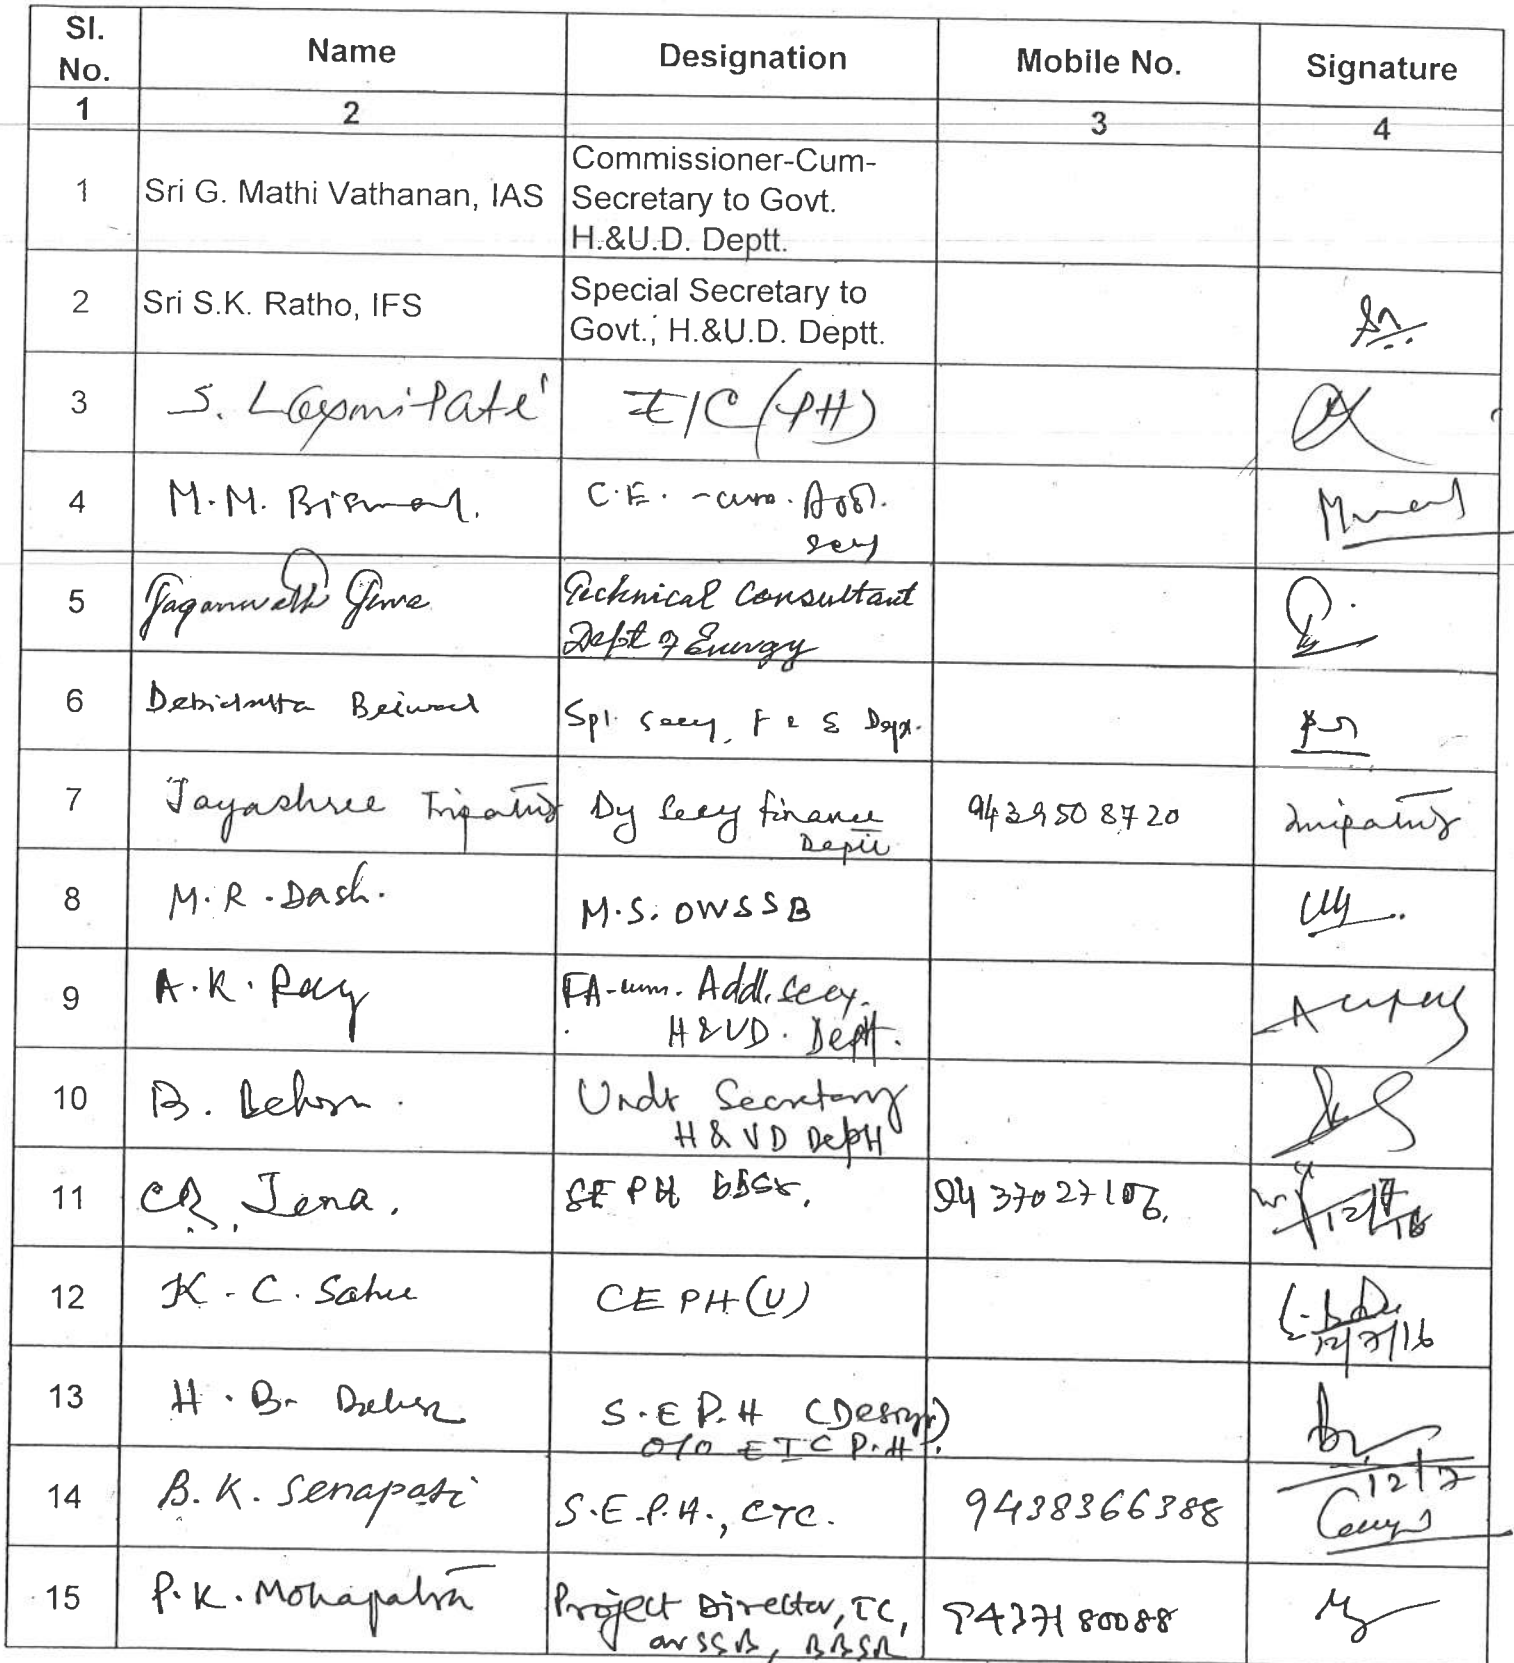 Sl. No. Name Designation Mobile No. Signature
1 2 3 4
1 Sri G. Mathi Vathanan, IAS Commissioner-Cum-
Secretary to Govt.
H.&U.D. Deptt.
2 Sri S.K. Ratho, IFS Special Secretary to
Govt., H.&U.D. Deptt.
3 S. Laxmipati EIC (PH)
4 M.M. C.E. -cum. Addl.
Secy
5 Jagannath Technical Consultant
Dept of Energy
6 Debidutta Biswal Spl. Secy, F & E Dept.
7 Jayashree Tripathy Dy Secy finance 9439508720 Tripathy
Deptt
8 M.R. Dash. M.S. OWSSB
9 A.K. Ray FA-cum. Addl. Secy.
H&UD. Deptt.
10 B. Behera. Under Secretary
H & UD Deptt
11 Jena. SE PH BBSR, 12/7/16
12 K. C. Sahu CE PH (U) 12/7/16
13 H. B. S.E P.H (Design)
O/O EIC P.H. 12/7
14 B. K. Senapati S.E.P.H., CTC. 9438366388
15 P.K. Mohapatra Project Director, TC, 9437180088
OWSSB, BBSR